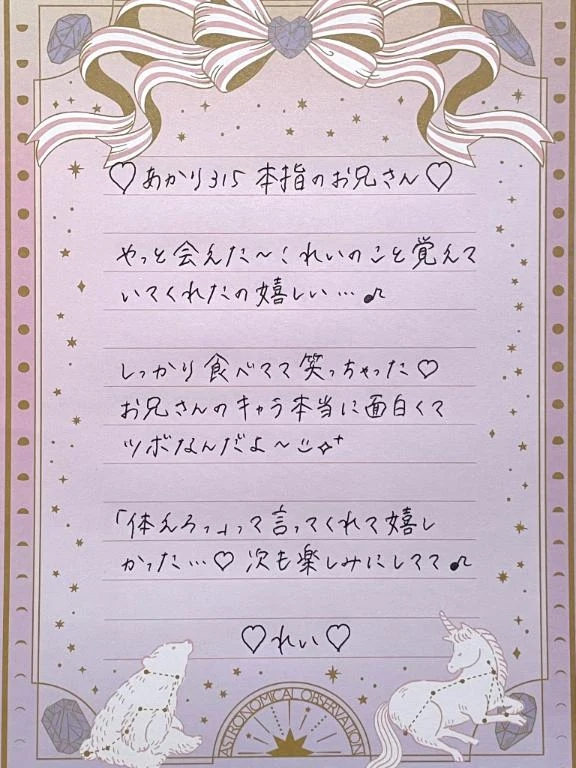 ♡あかり315 本指のお兄さん♡
やっと会えた〜! れいのこと覚えて
いてくれたの嬉しい…♪
しっかり食べママ笑っちゃった♡
お兄さんのキャラ本当に面白くて
ツボなんだよ〜
「体えろっ」って言ってくれて嬉し
かった…♡ 次も楽しみにしてて♪
♡れい♡
ASTRONOMICAL OBSERVATION